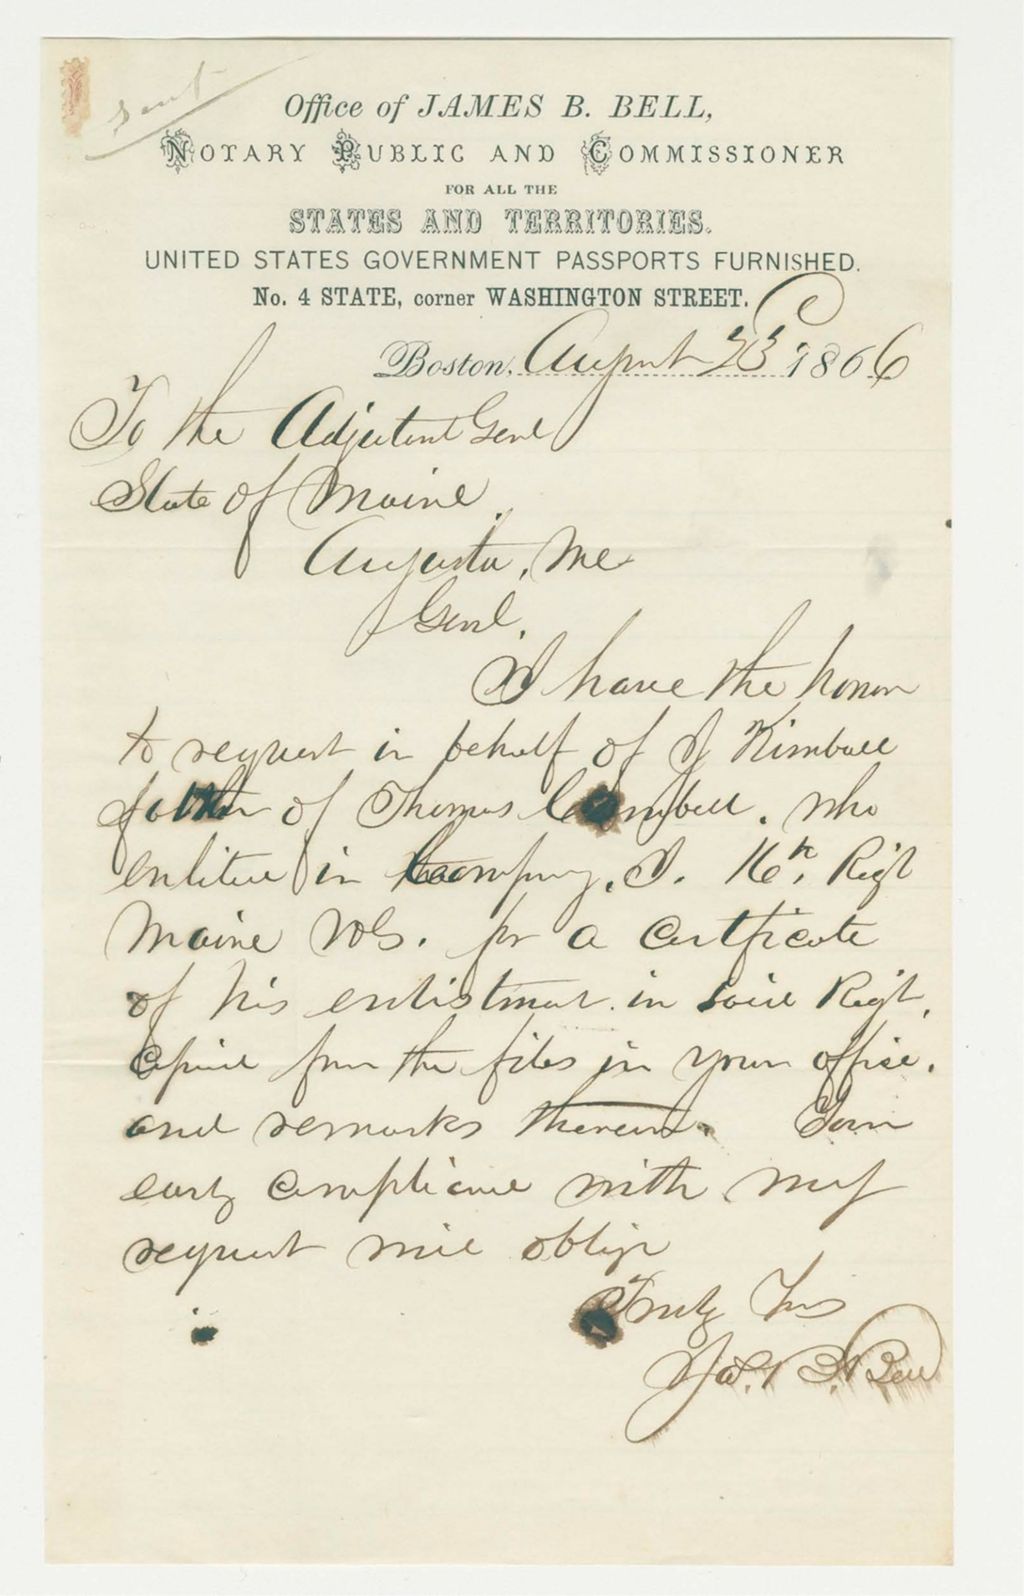 Sent
Office of JAMES B. BELL,
NOTARY PUBLIC AND COMMISSIONER
FOR ALL THE
STATES AND TERRITORIES.
UNITED STATES GOVERNMENT PASSPORTS FURNISHED.
No. 4 STATE, corner WASHINGTON STREET.
Boston, August 1866
To the Adjutant Genl
State of Maine.
Augusta, Me
Genl.
I have the honor
to request in behalf of J Kimball
father of Thomas C. who
in Company, I. 16th. Regt
Maine Vols. for a Certficate
of his enlistment in said Regt,
Copied from the files in your office.
and remarks thereon. Your
early compliance with my
request will oblige
Truly Yrs
Jas. B. Bell